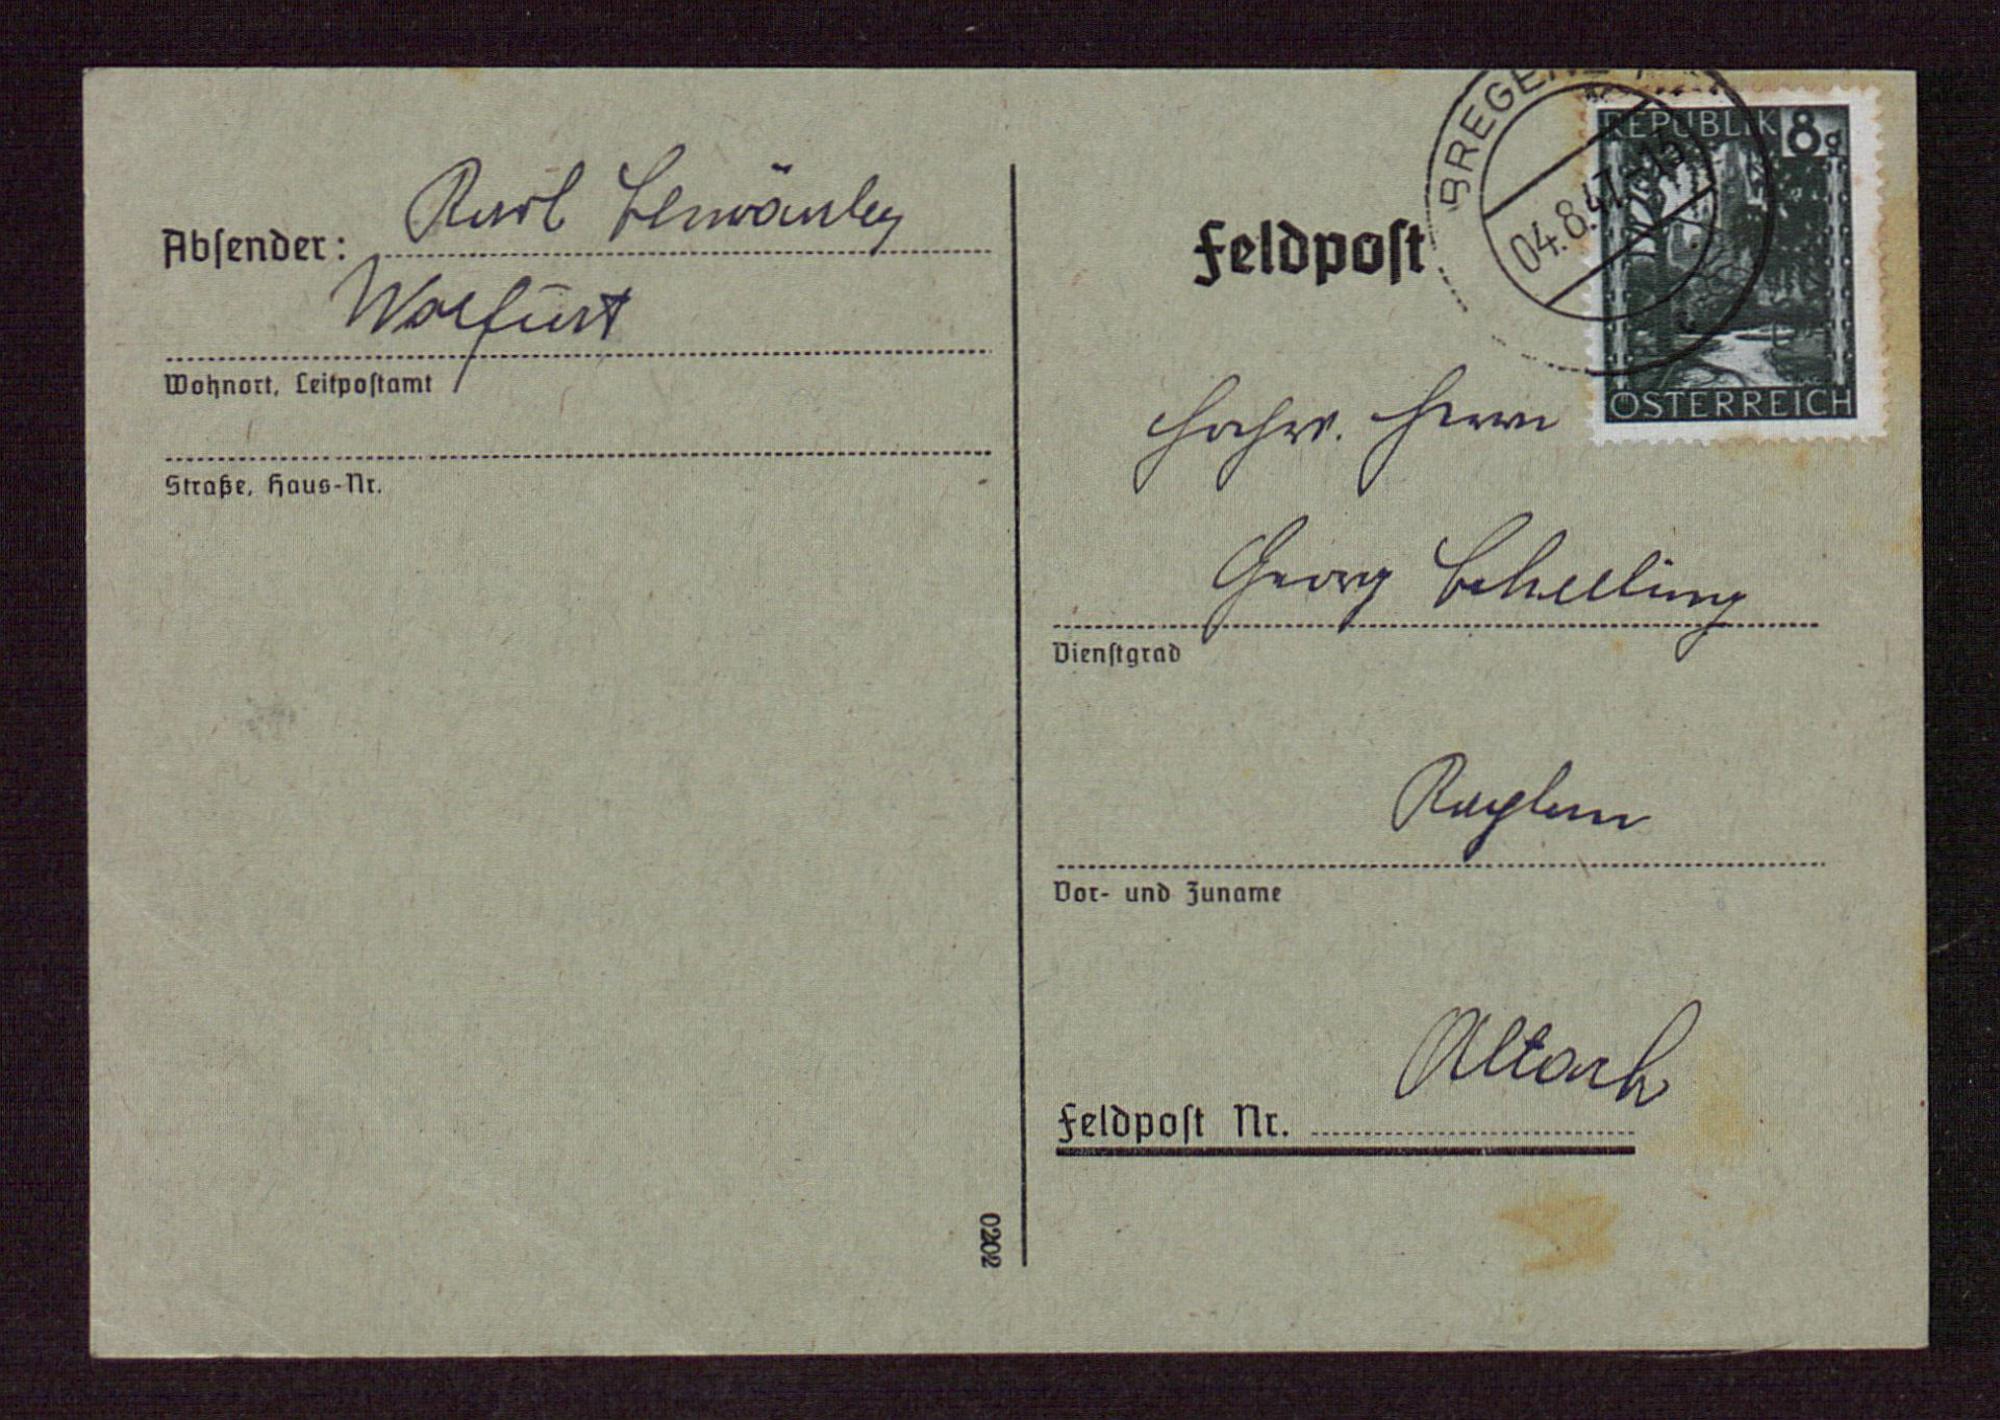 Absender: Karl
Wolfurt
Wohnort, Leitpostamt
Straße, Haus-Nr.
BREGENZ
04.8.47.-15
REPUBLIK 8g
ÖSTERREICH
Feldpost
Hochw. Herrn
Georg Schelling
Dienstgrad
Kaplan
Vor- und Zuname
Altach
Feldpost Nr.
0202